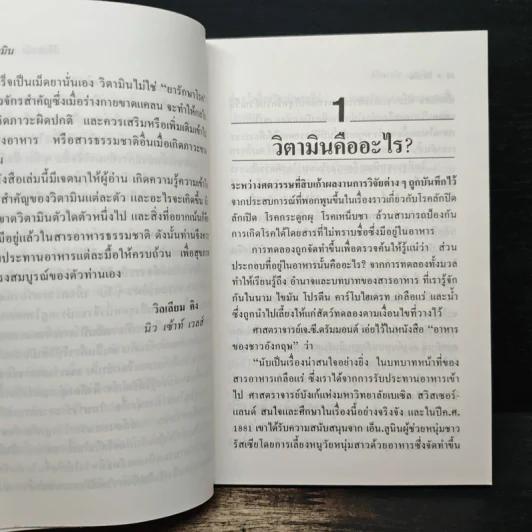 มิน
ร็จเป็นเม็ดยานั่นเอง วิตามินไม่ใช่ "ยารักษาโรค"
วจักรสำคัญซึ่งเมื่อร่างกายขาดแคลน จะทำให้
กิดภาวะผิดปกติ และควรเสริมหรือเพิ่มเติมเข้าไป
อาหาร หรือสารธรรมชาติอื่นเมื่อเกิดภาวะขาด
น
สือเล่มนี้มีเจตนาให้ผู้อ่าน เกิดความรู้ความเข้าใจ
สำคัญของวิตามินแต่ละตัว และอะไรจะเกิดขึ้น
ขาดวิตามินตัวใดตัวหนึ่งไป และสิ่งที่อยากเน้นก็
มีอยู่แล้วในสารอาหารธรรมชาติ ดังนั้นท่านจึง
ประทานอาหารแต่ละมื้อให้ครบถ้วน เพื่อสุขภาพ
รงสมบูรณ์ของตัวท่านเอง
วิลเลียม คิง
นิว เซ้าท์ เวลส์
1
วิตามินคืออะไร?
ระหว่างศตวรรษที่สิบเก้าผลงานการวิจัยต่าง ๆ ถูกบันทึกไว้
จากประสบการณ์ที่พอกพูนขึ้นในเรื่องราวเกี่ยวกับโรคลักปิด
ลักเปิด โรคกระดูกผุ โรคเหน็บชา ล้วนสามารถป้องกัน
การเกิดโรคได้โดยสารที่ไม่ทราบชื่อซึ่งมีอยู่ในอาหาร
การทดลองถูกจัดทำขึ้นเพื่อตรวจค้นให้รู้แน่ว่า ส่วน
ประกอบที่อยู่ในอาหารนั้นคืออะไร? จากการทดลองทั้งมวล
ทำให้เรียนรู้ถึง อำนาจและบทบาทของสารอาหาร ที่เรารู้จัก
กันในนาม ไขมัน โปรตีน คาร์โบไฮเดรท เกลือแร่ และน้ำ
ซึ่งถูกนำไปเลี้ยงให้แก่สัตว์ทดลองตามเงื่อนไขที่วางไว้
ศาสตราจารย์เจ.ซี.ดรัมมอนด์ เอ่ยไว้ในหนังสือ "อาหาร
ของชาวอังกฤษ" ว่า
"นับเป็นเรื่องน่าสนใจอย่างยิ่ง ในบทบาทหน้าที่ของ
สารอาหารเกลือแร่ ซึ่งเราได้จากการรับประทานอาหารเข้า
ไป ศาสตราจารย์บังเก้แห่งมหาวิทยาลัยเบเซิล สวิสเซอร์-
แลนด์ สนใจและศึกษาในเรื่องนี้อย่างจริงจัง และในปีค.ศ.
1881 เขาได้รับความสนับสนุนจาก เอ็น.ลูนินผู้ช่วยหนุ่มชาว
รัสเซียโดยการเลี้ยงหนูวัยหนุ่มสาวด้วยอาหารซึ่งจัดทำขึ้น